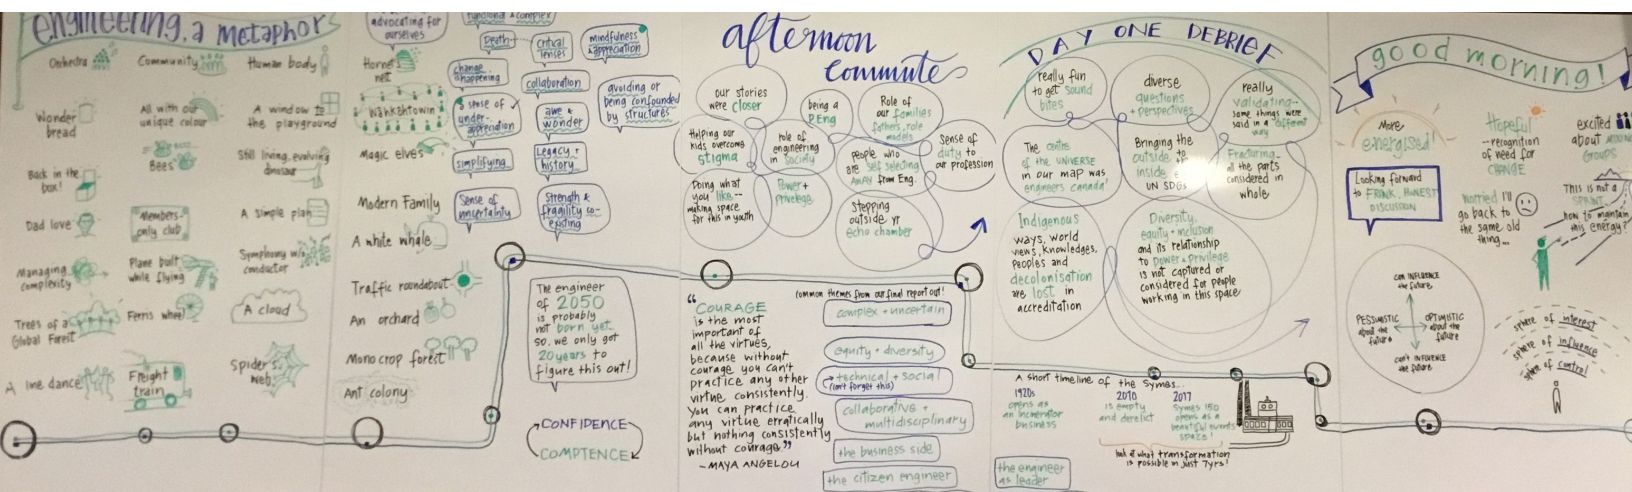 engineering, a metaphor
Orchestra
Community
Human body
Wonder
bread
All with our
unique colour
A window to
the playground
Back in the
box!
Bees
Still living, evolving
dinosaur
Dad love
Members-
only club
A simple plan
Managing
complexity
Plane built
while flying
Symphony w/o
conductor
Trees of a
Global Forest
Ferris wheel
A cloud
A line dance
Freight
train
Spider's
web
advocating for
ourselves
Hornet
net
Wankhktowin
Magic elves
Modern Family
A white whale
Traffic roundabout
An orchard
Mono crop forest
Ant colony
functional + complex
Death
critical
lenses
mindfulness
+ appreciation
change
happening
collaboration
avoiding or
being confounded
by structures
sense of
under-
appreciation
awe &
wonder
simplifying
Legacy +
history
Sense of
uncertainty
Strength &
fragility co-
existing
The engineer
of 2050
is probably
not born yet.
so, we only got
20 years to
figure this out!
CONFIDENCE
COMPTENCE
afternoon
commute
our stories
were closer
being a
P.Eng
Role of
our families
fathers, role
models
Helping our
kids overcome
stigma
role of
engineering
in society
people who
are self selecting
AWAY from Eng.
Sense of
duty to
our profession
Doing what
you like--
making space
for this in youth
Power +
privelege
Stepping
outside yr
echo chamber
"COURAGE
is the most
important of
all the virtues,
because without
courage you can't
practice any other
virtue consistently.
You can practice
any virtue erratically
but nothing consistently
without courage."
-MAYA ANGELOU
common themes from our final report out!
complex + uncertain
equity + diversity
technical + social
(don't forget this)
collaborative +
multidisciplinary
the business side
the citizen engineer
DAY ONE DEBRIEF
really fun
to get sound
bites
diverse
questions
+ perspectives
really
validating--
some things were
said in a different
way
The centre
of the UNIVERSE
in our map was
engineers canada!
Bringing the
outside
inside
UN SDGs
Fracturing--
all the parts
considered in
whole
Indigenous
ways, world
views, knowledges,
peoples and
decolonisation
are lost in
accreditation
Diversity,
equity + inclusion
and its relationship
to power & privilege
is not captured or
considered for people
working in this space
A short timeline of the Symes...
1920s
opens as
an incinerator
business
2010
is empty
and derelict
2017
Symes 150
opens as a
beautiful events
space!
look at what transformation
is possible in just 7yrs!
the engineer
as leader
good morning!
More
energised!
Hopeful
--recognition
of need for
CHANGE
excited
about
GROUPS
Looking forward
to FRANK, HONEST
DISCUSSION
worried I'll
go back to
the same old
thing...
This is not a
SPRINT
how to maintain
this energy?
can INFLUENCE
the future
PESSIMISTIC
about the
future
OPTIMISTIC
about the
future
can't INFLUENCE
the future
sphere of interest
sphere of influence
sphere of control